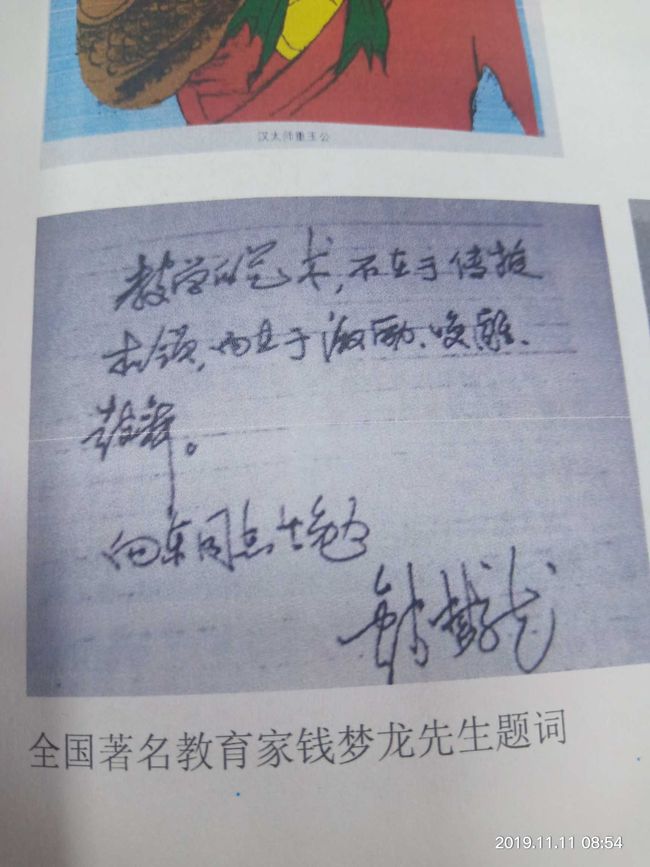 汉太师重玉公
教学的艺术，不在于传授
本领，而在于激励、唤醒、
鼓舞。
向东同志共勉
钱梦龙
全国著名教育家钱梦龙先生题词
2019.11.11 08:54